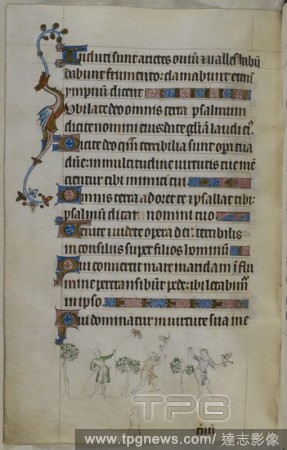 Induti sunt arietes ouiū ⁊ ualles habū
dabunt frumento: clamabunt etenī
ympnū dicent
Iubilate deo omnis terra psalmum
dicite nomini eius: date gl̄iam laudi eiꝰ
Dicite deo qm̄ terribilia sunt opera tua
dn̄e: in multitudine uirtutis tue mē
cientur tibi inimici tui
Omnis terra adoret te ⁊ psallat tibi:
psalmū dicat nomini tuo
Uenite ⁊ uidete opera dei: terribilis
in consiliis super filios hominū
Qui conuertit mare in aridam ī flu
mine pertransibūt pede: ibi letabimꝰ
in ipso
Qui dominatur in uirtute sua ine
TPG
www.tpgnews.com/ 達志影像